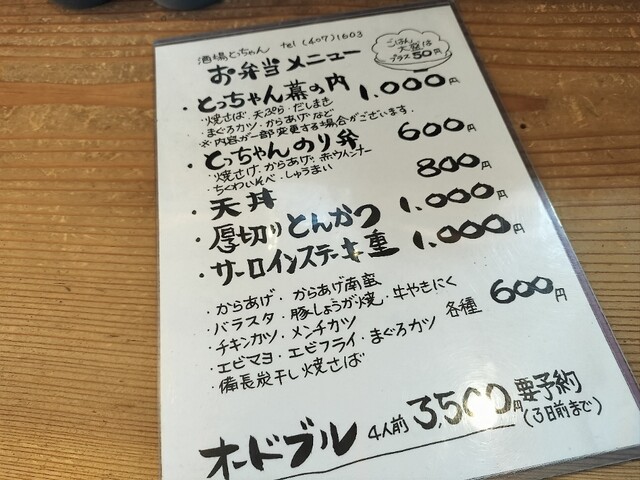 酒場とっちゃん tel (407)1603
お弁当メニュー
ごはん
大盛は
プラス50円
・とっちゃん幕の内 1.000円
・焼さば.天ぷら.だしまき
・まぐろカツ.からあげなど
※内容が一部変更する場合がございます.
・とっちゃんのり弁 600円
・焼さけ.からあげ.赤ウインナー
・ちくわいそべ.しゅうまい
・天丼 800円
・厚切りとんかつ 1.000円
・サーロインステーキ重 1.000円
・からあげ・からあげ南蛮
・バラスタ・豚しょうが焼・牛やきにく
・チキンカツ・メンチカツ 各種 600円
・エビマヨ・エビフライ・まぐろカツ
・備長炭干し焼さば
オードブル 4人前 3,500円 要予約
(3日前まで)